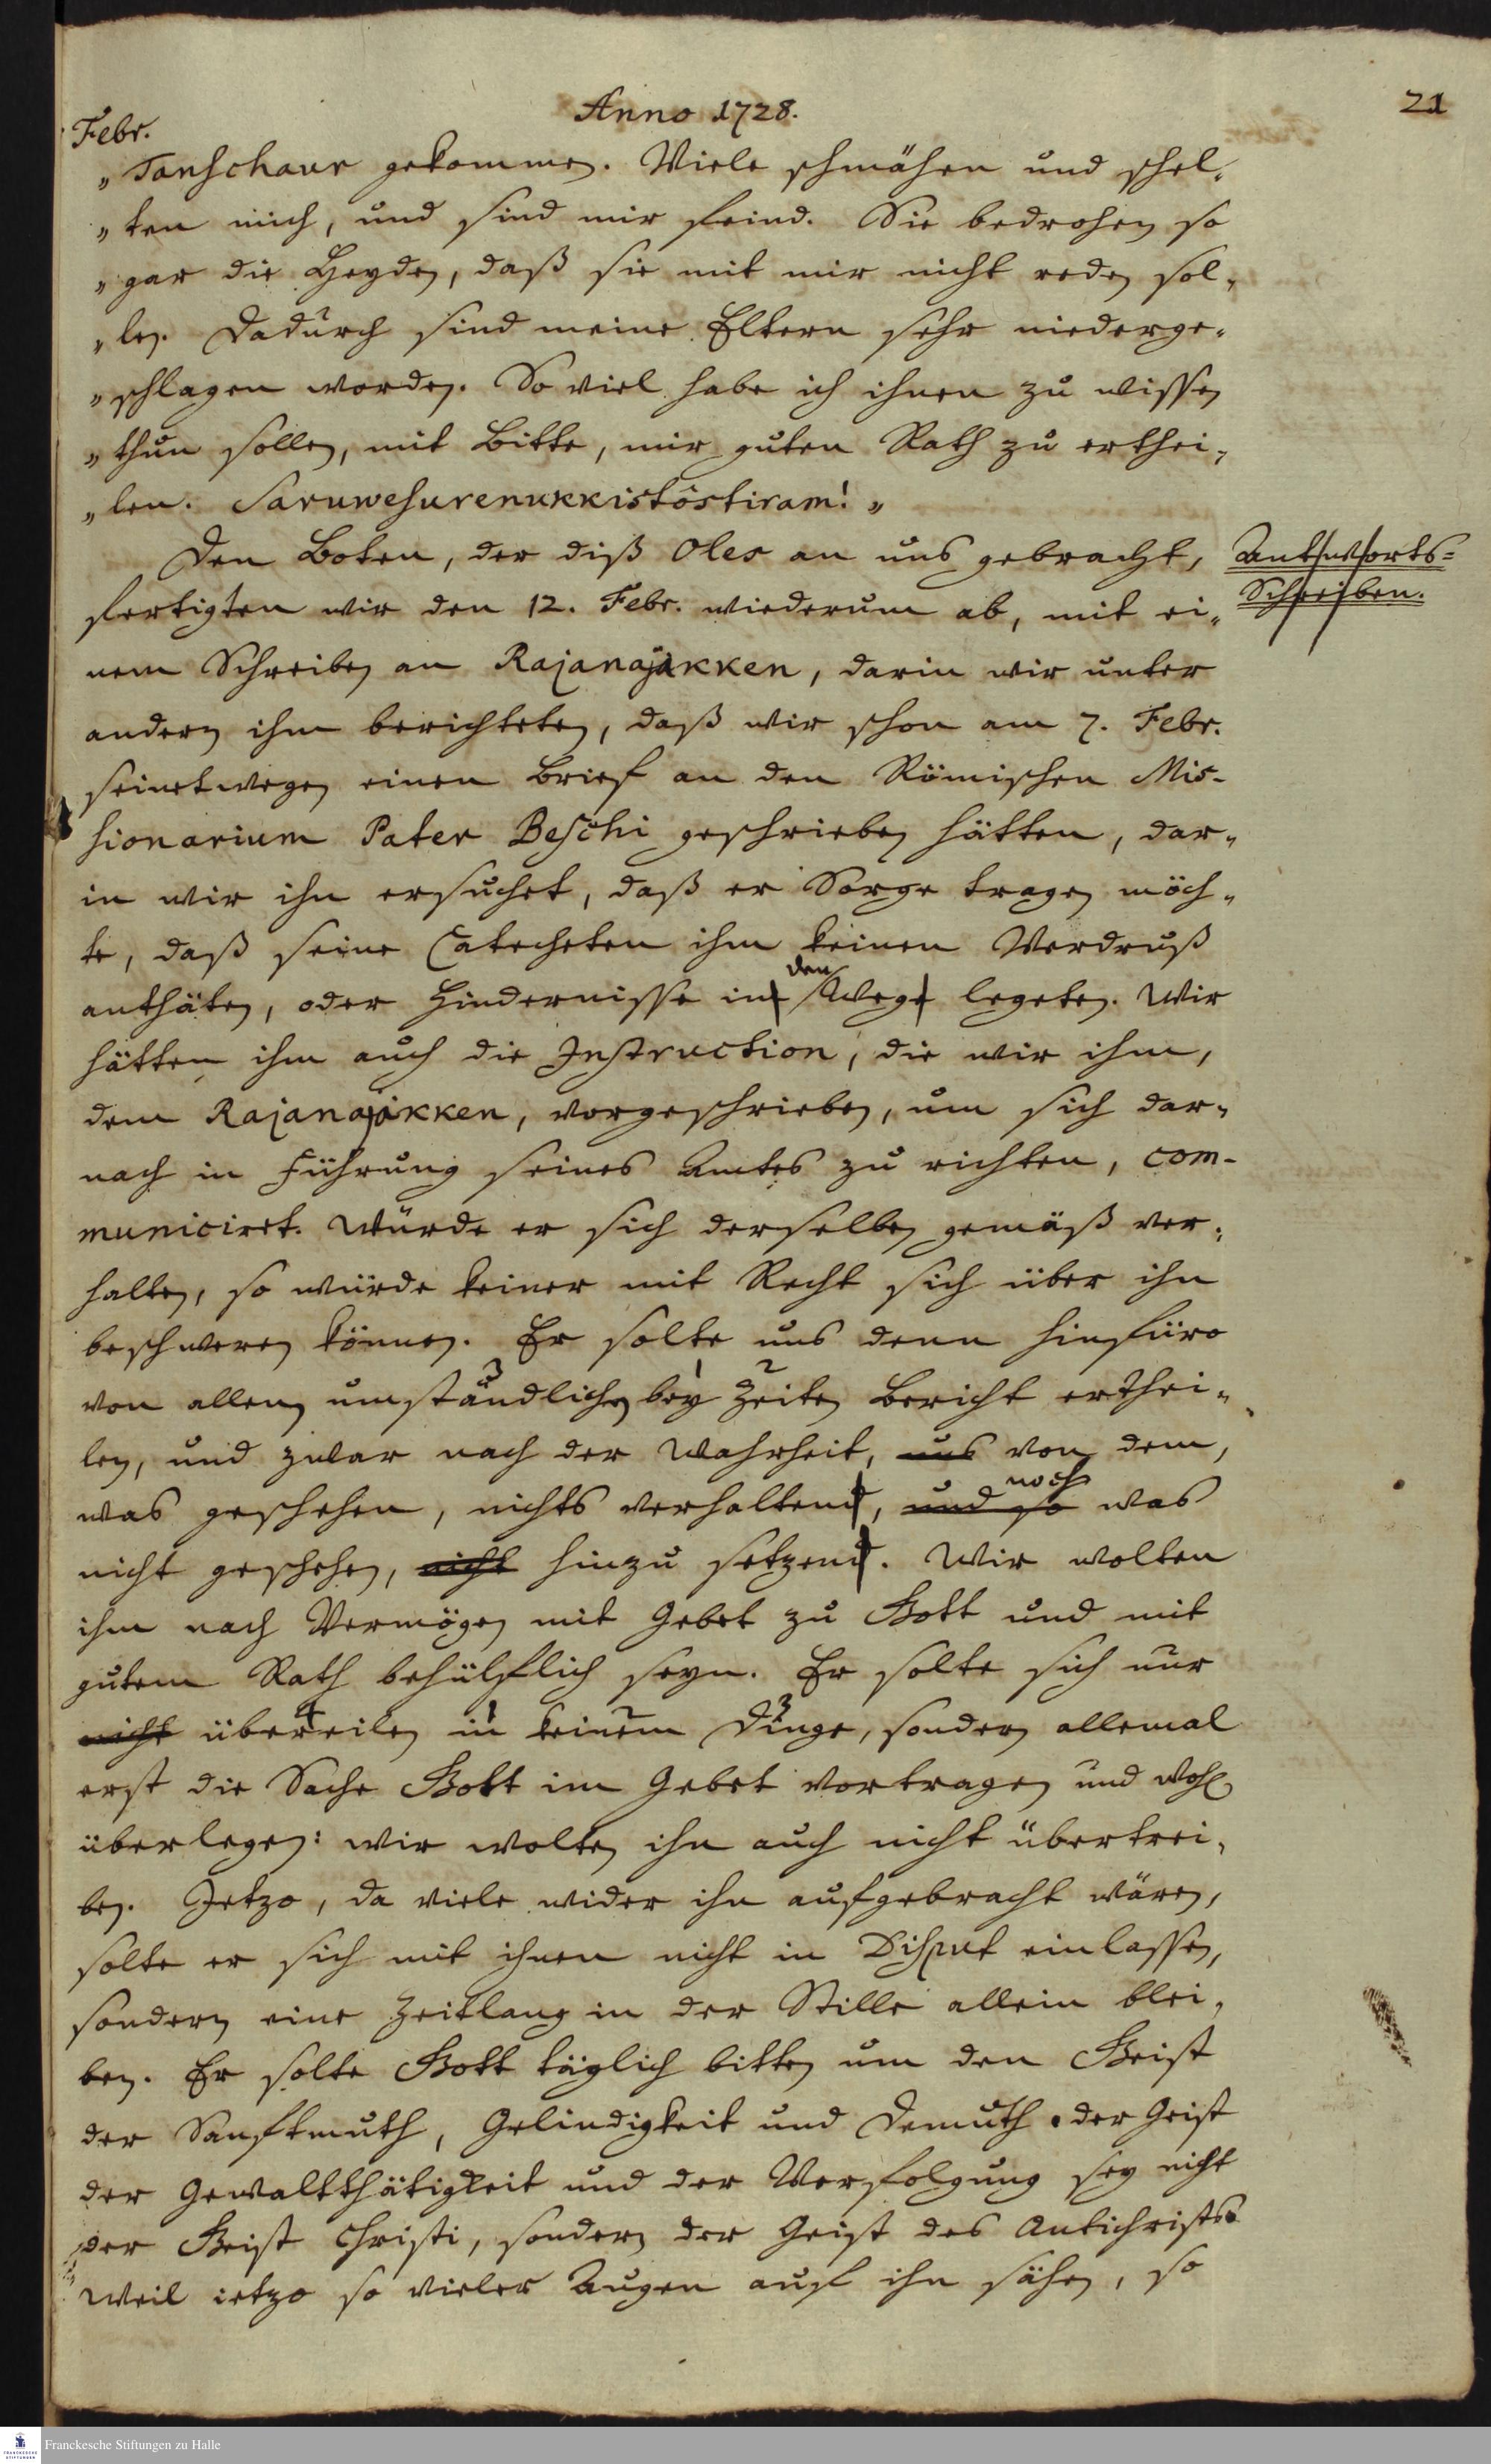 Anno 1728.
21
Febr.
„Tanschaur gekommen. Viele schmähen und schel-
„ten mich, und sind mir feind. Sie bedrohen so
„gar die Heyden, daß sie mit mir nicht reden sol-
„len. Dadurch sind meine Eltern sehr niederge-
„schlagen worden. So viel habe ich ihnen zu wissen
„thun sollen, mit Bitte, mir guten Rath zu erthei-
„len. Saruwesurenukkistôstiram! „
Den Boten, der diß Oles an uns gebracht,
Antworts-
Schreiben.
fertigten wir den 12. Febr. wiederum ab, mit ei-
nem Schreiben an Rajanajakken, darin wir unter
andern ihm berichteten, daß wir schon am 7. Febr.
seinetwegen einen Brief an den Römischen Mis-
sionarium Pater Beschi geschrieben hätten, dar-
in wir ihn ersuchet, daß er Sorge tragen möch-
te, daß seine Catecheten ihm keinen Verdruß
den
anthäten, oder Hindernisse in Wege legeten. Wir
hätten ihm auch die Instruction, die wir ihm,
dem Rajanajakken, vorgeschrieben, um sich dar-
nach in Führung seines Amtes zu richten, com-
municiret. Würde er sich derselben gemäß ver-
halten, so würde keiner mit Recht sich über ihn
beschweren können. Er solte uns denn hinführo
3 1 2
von allen umständlichen bey Zeiten Bericht erthei-
len, und zwar nach der Wahrheit, uns von dem,
noch
was geschehen, nichts verhaltend, und so was
nicht geschehen, nicht hinzu setzend. Wir wolten
ihm nach Vermögen mit Gebet zu Gott und mit
gutem Rath behülflich seyn. Er solte sich nur
4 1 2 3
nicht übereilen in keinem Dinge, sondern allemal
erst die Sache Gott im Gebet vortragen und wohl
überlegen: wir wolten ihn auch nicht übertrei-
ben. Jetzo, da viele wider ihn aufgebracht wären,
solte er sich mit ihnen nicht in Disput einlassen,
sondern eine Zeitlang in der Stille allein blei-
ben. Er solte Gott täglich bitten um den Geist
der Sanftmuth, Gelindigkeit und Demuth. der Geist
der Gewaltthätigkeit und der Verfolgung sey nicht
der Geist Christi, sondern der Geist des Antichrists.
Weil ietzo so vieler Augen auf ihn sähen, so
Franckesche Stiftungen zu Halle